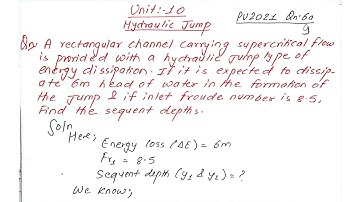 Unit:-10
Hydraulic Jump
PU2021 Qn:6a
9
Qn) A rectangular channel carrying supercritical flow
is provided with a hydraulic jump type of
energy dissipation. If it is expected to dissip-
ate 6m head of water in the formation of
the jump & if inlet froude number is 8.5,
Find the sequent depths.
Soln
Here;
Energy loss (ΔE) = 6m
Fr1 = 8.5
Sequent depth (y1 & y2) = ?
We know;